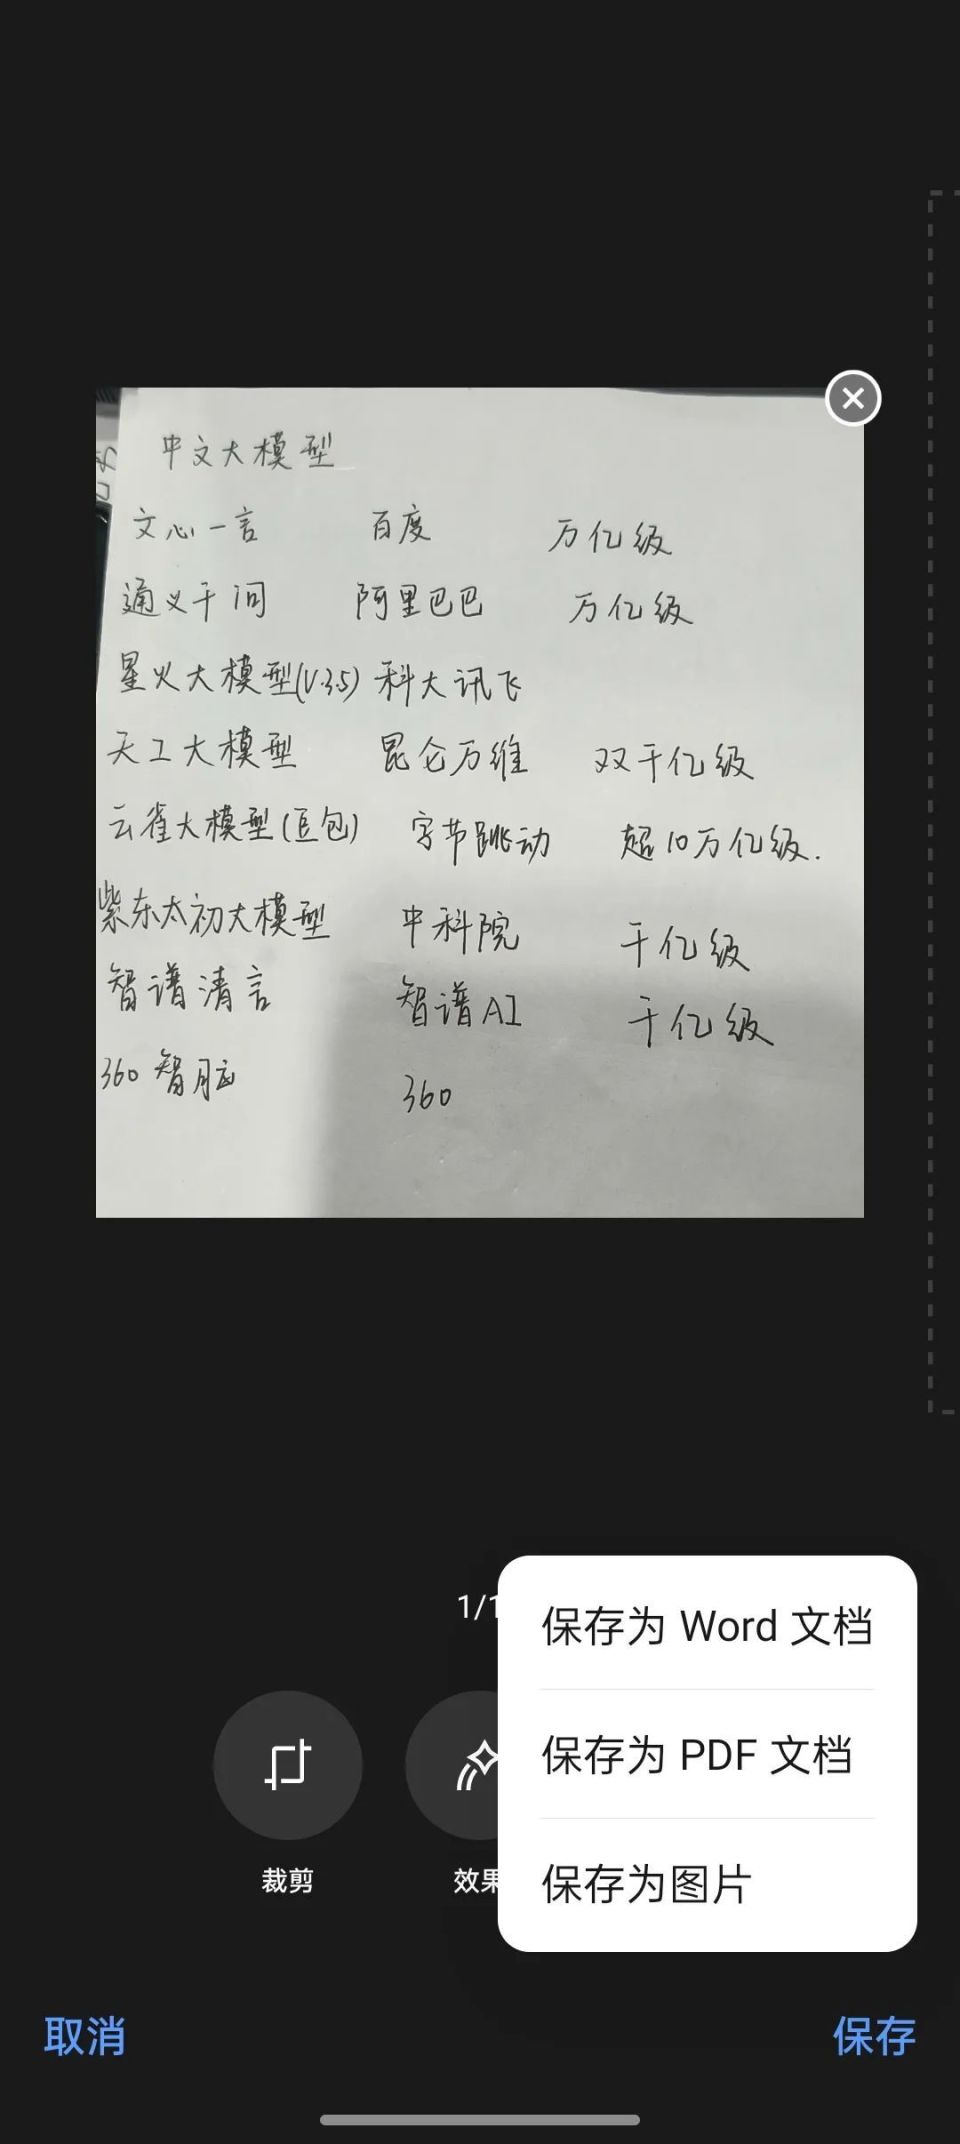 中文大模型
文心一言 百度 万亿级
通义千问 阿里巴巴 万亿级
星火大模型(V.3.5) 科大讯飞
天工大模型 昆仑万维 双千亿级
云雀大模型(豆包) 字节跳动 超10万亿级.
紫东太初大模型 中科院 千亿级
智谱清言 智谱AI 千亿级
360智脑 360
1/1
保存为 Word 文档
保存为 PDF 文档
保存为图片
裁剪 效果
取消 保存